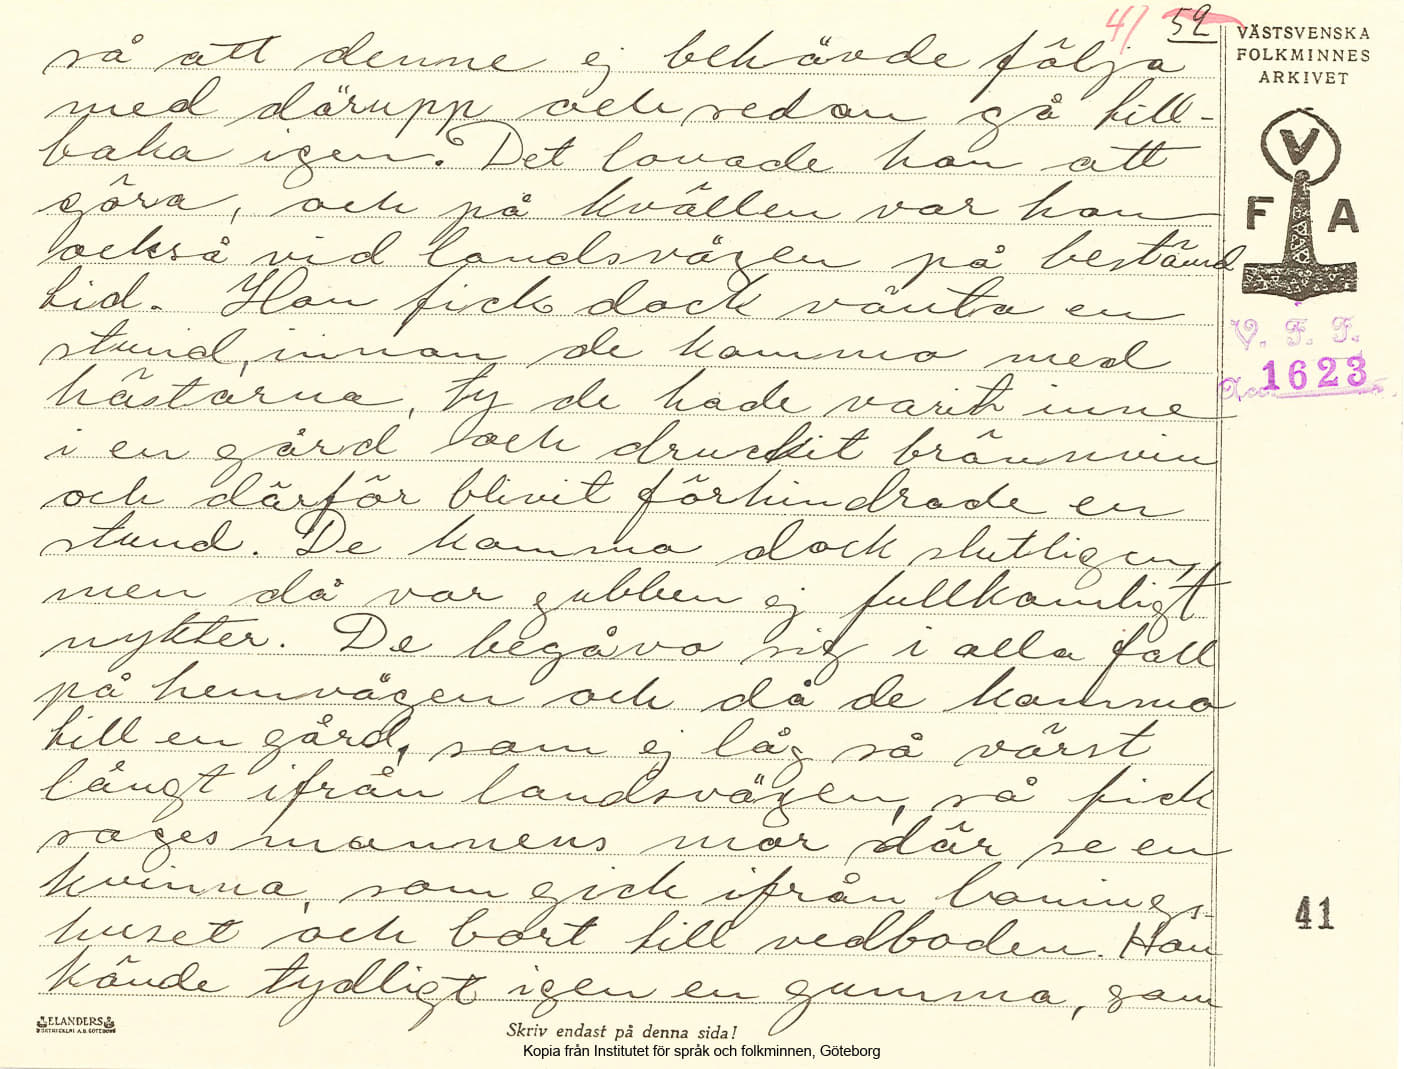 41 52
VÄSTSVENSKA
FOLKMINNES
ARKIVET
V
F A
V. F. F.
1623
så att denne ej behövde följa
med därupp och sedan gå till-
baka igen. Det lovade han att
göra, och på kvällen var han
också vid landsvägen på bestämd
tid. Han fick dock vänta en
stund, innan de kommo med
hästarna, ty de hade varit inne
i en gård och druckit brännvin
och därför blivit förhindrade en
stund. De kommo dock slutligen,
men då var gubben ej fullkomligt
nykter. De begåvo sig i alla fall
på hemvägen och då de kommo
till en gård, som ej låg så värst
långt ifrån landsvägen, så fick
sagesmannens mor där se en
kvinna, som gick ifrån bonings-
huset och bort till vedboden. Hon
kände tydligt igen en gumma, som
41
ELANDERS
BOKTRYCKERI A.B. GÖTEBORG
Skriv endast på denna sida!
Kopia från Institutet för språk och folkminnen, Göteborg